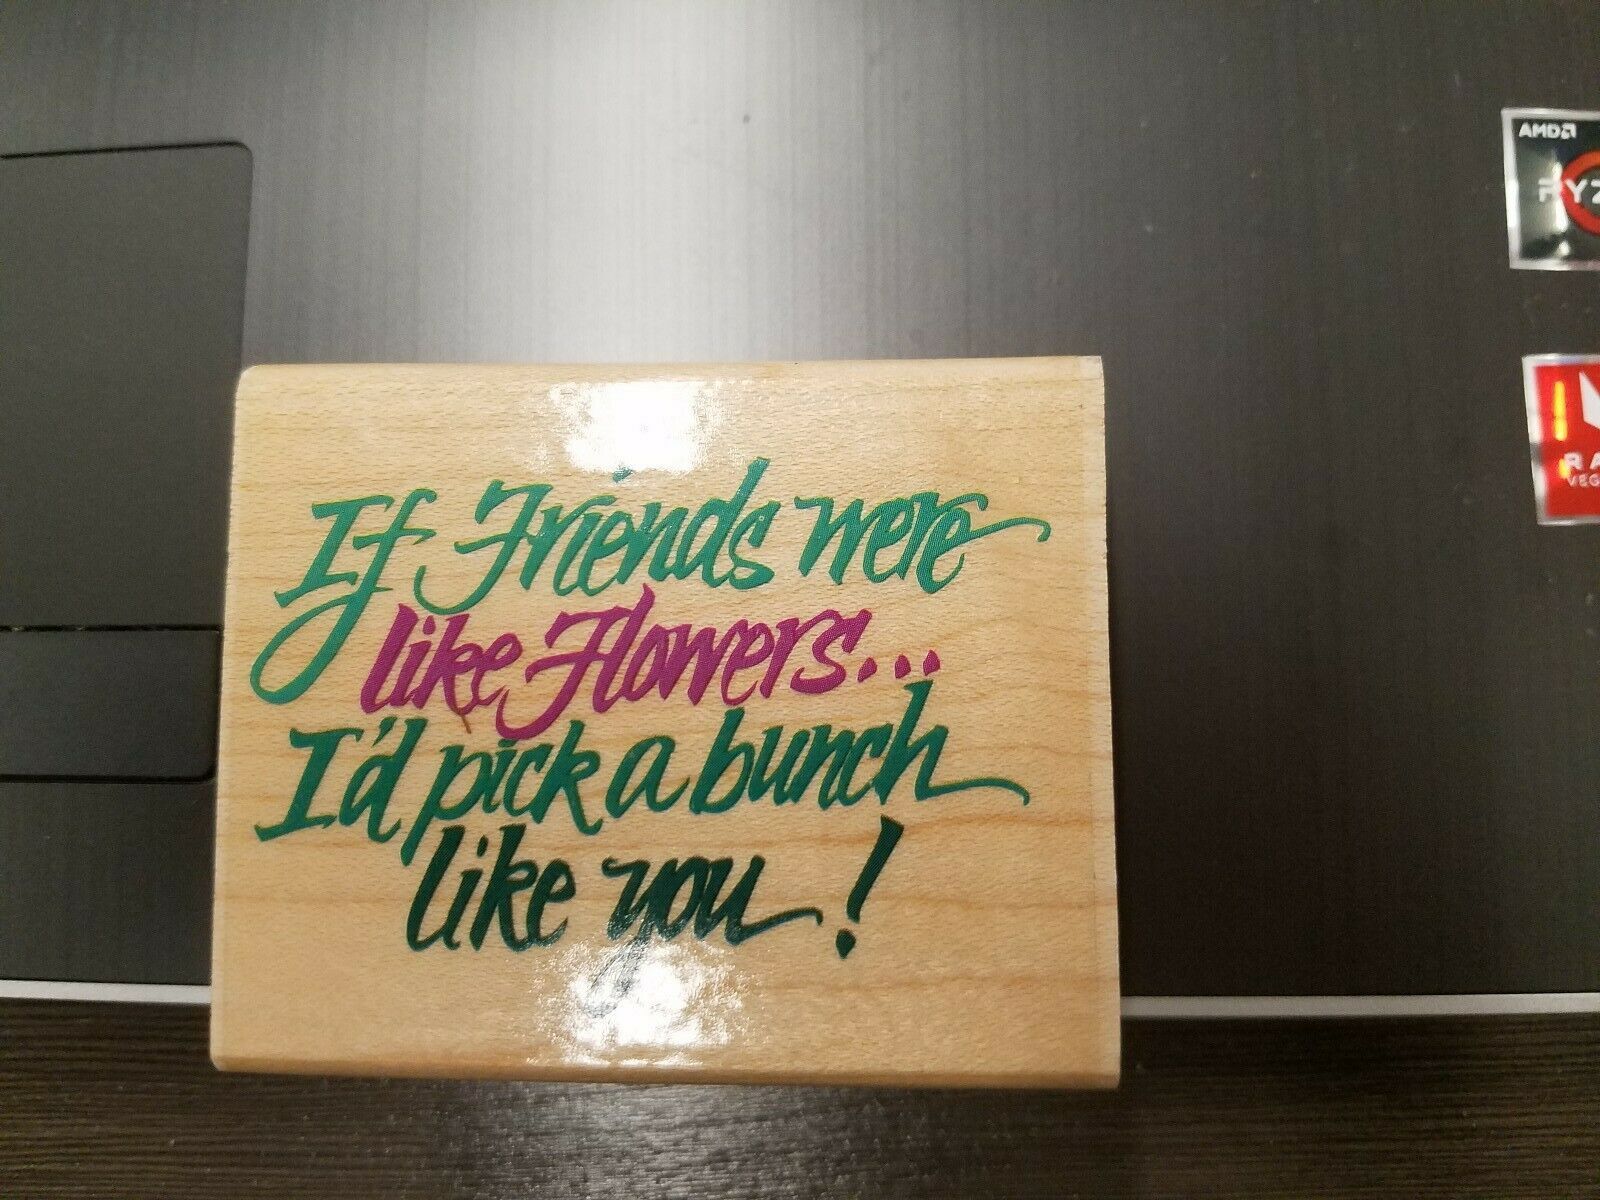 If Friends were
like Flowers...
I'd pick a bunch
like you!
AMD
RYZ
RA
VEG